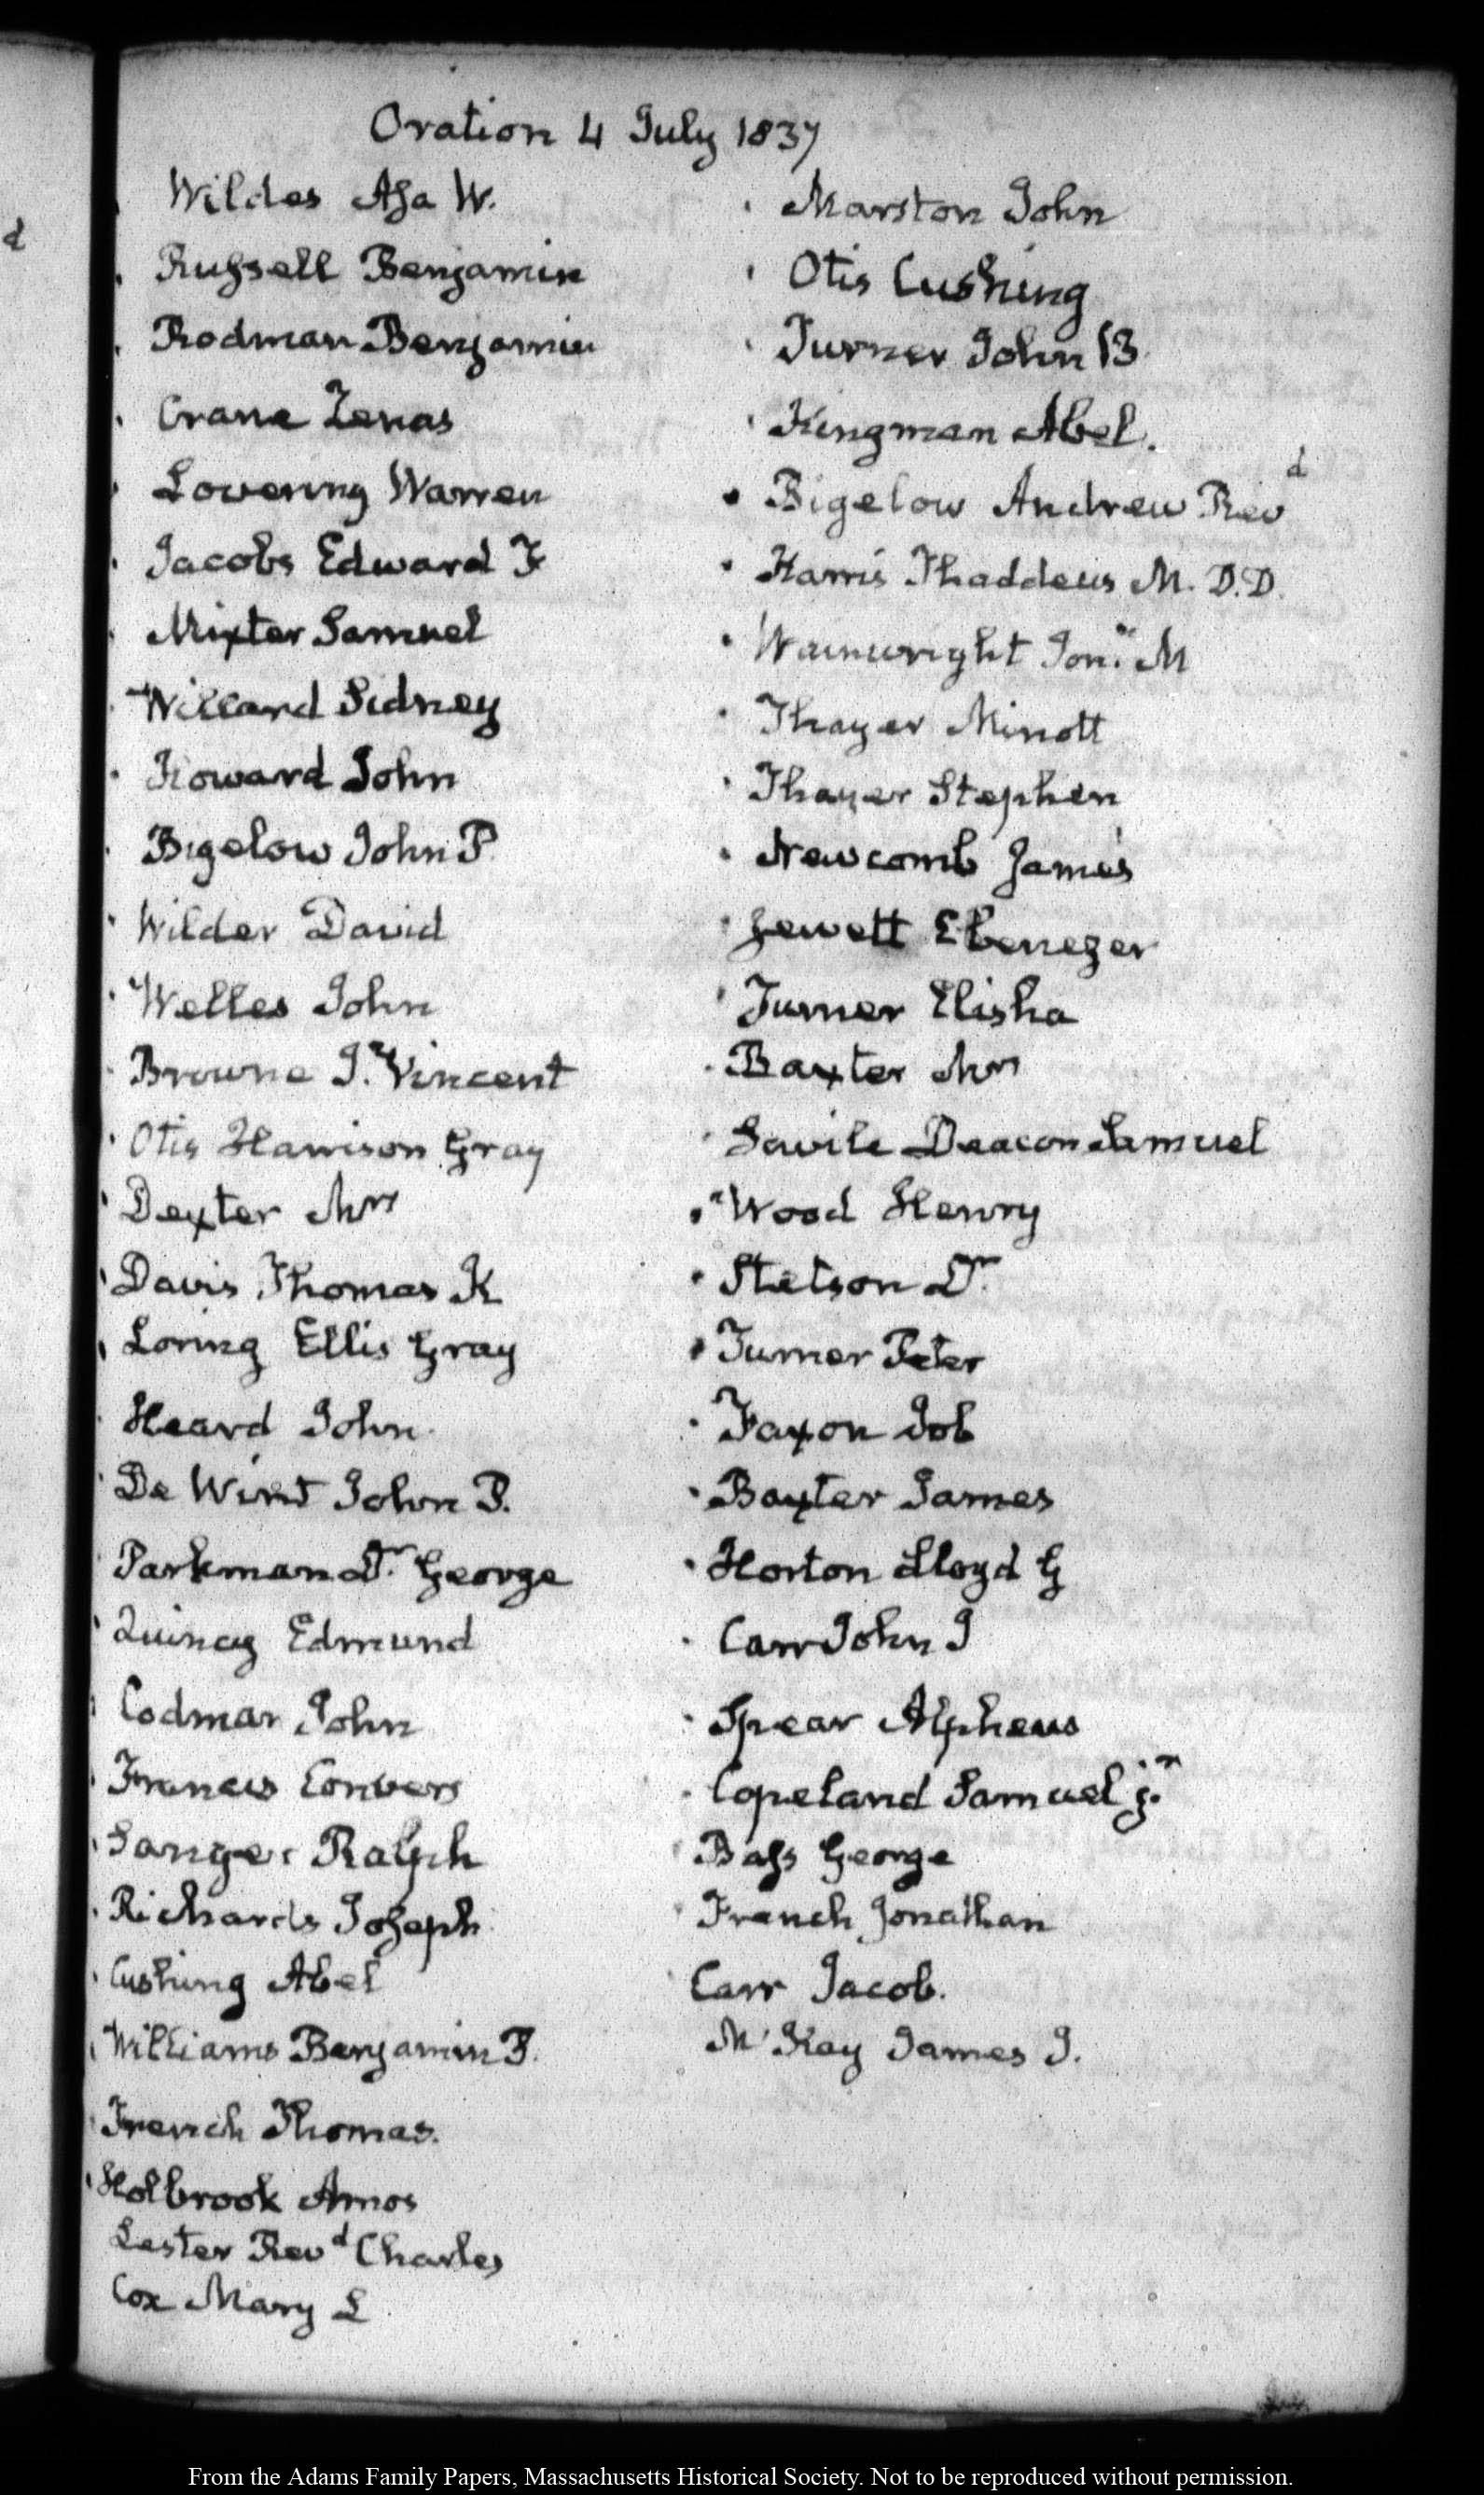 Oration 4 July 1837
Wildes Asa W.
Russell Benjamin
Rodman Benjamin
Crane Zenas
Lovering Warren
Jacobs Edward F
Mixter Samuel
Willard Sidney
Howard John
Bigelow John P.
Wilder David
Welles John
Browne J. Vincent
Otis Harrison Gray
Dexter Mrs
Davis Thomas K
Loring Ellis Gray
Heard John
De Wint John P.
Parkman Dr. George
Quincy Edmund
Codman John
Francis Convers
Sanger Ralph
Richards Joseph
Cushing Abel
Williams Benjamin F.
French Thomas.
Holbrook Amos
Lester Revd Charles
Cox Mary L
Marston John
Otis Cushing
Turner John B
Kingman Abel.
Bigelow Andrew Revd
Harris Thaddeus M. D.D.
Wainwright Jon. M
Thayer Minott
Thayer Stephen
Newcomb James
Jewett Ebenezer
Turner Elisha
Baxter Mrs
Savile Deacon Samuel
Wood Henry
Stetson Dr.
Turner Peter
Faxon Job
Baxter James
Horton Lloyd G
Carr John J
Spear Alpheus
Copeland Samuel jr.
Bass George
French Jonathan
Carr Jacob.
McKay James J.
d
From the Adams Family Papers, Massachusetts Historical Society. Not to be reproduced without permission.